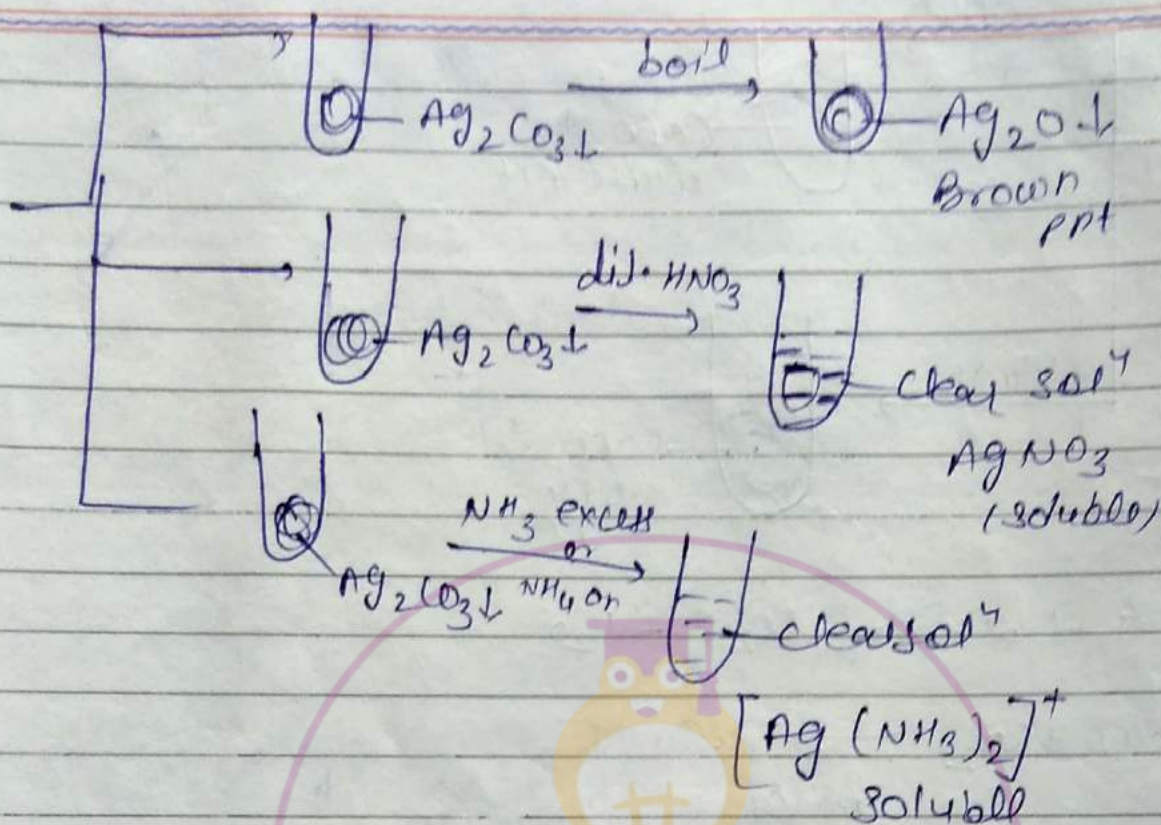 Ag₂CO₃↓ boil Ag₂O↓
Brown
ppt
Ag₂CO₃↓ dil. HNO₃ Clear solⁿ
AgNO₃
(soluble)
Ag₂CO₃↓ NH₃ excess
or
NH₄OH
clear solⁿ
[Ag(NH₃)₂]⁺
soluble